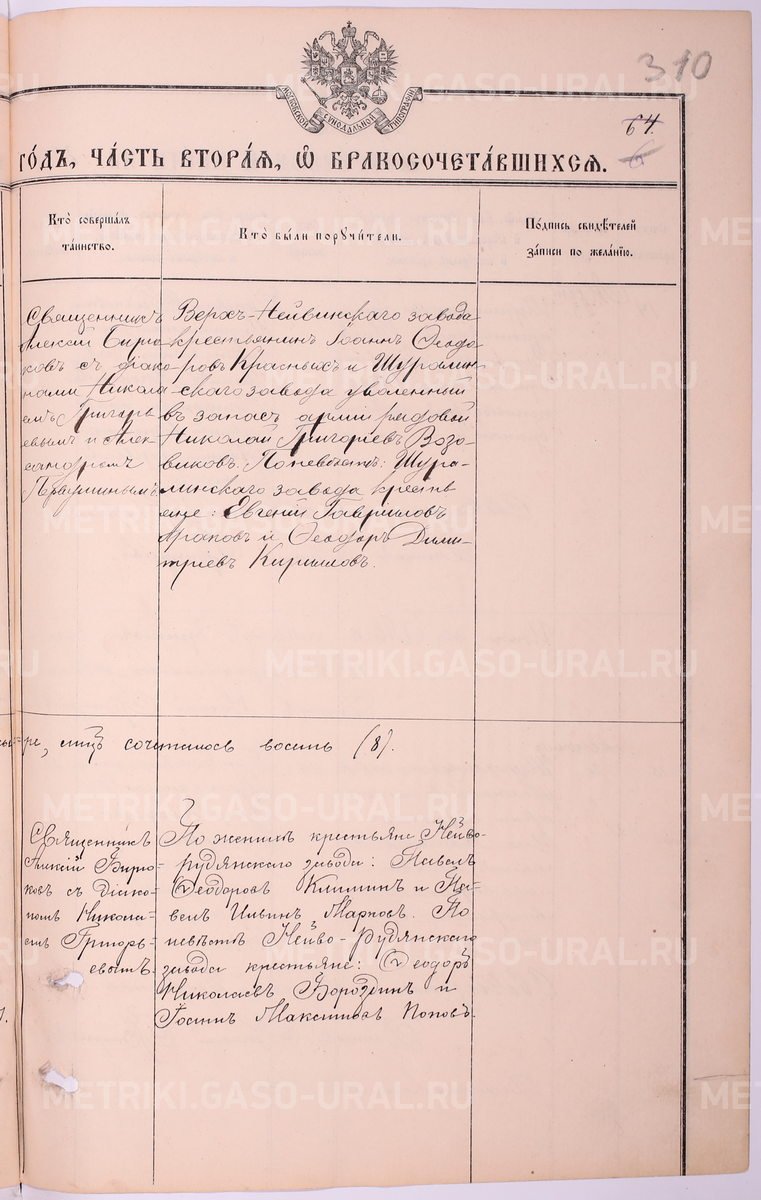 310
МОСКОВСКОЙ СѴНОДАЛЬНОЙ ТИПОГРАФІИ
64.
го́дъ, ча́сть втора́я, ѡ҆ бракосочета́вшихся.
Кто̀ соверша́лъ
та́инство.
Кто̀ бы́ли порꙋчи́тели.
По́дпись свидѣ́телей
за́писи по жела́нїю.
Священникъ
Алексій Бирю-
ковъ съ діако-
нами Никола-
емъ Григорь-
евымъ и Алек-
сандромъ
Первушинымъ
Верхъ-Нейвинскаго завода
крестьянинъ Іоаннъ Ѳеодо-
ровъ Красныхъ и Шуралин-
скаго завода уволенный
въ запасъ арміи рядовой
Николай Григоріевъ Возо-
виковъ. По невѣстѣ: Шура-
линскаго завода кресть
яне: Евгеній Гавріиловъ
Араповъ и Ѳеодоръ Дими-
тріевъ Кирилловъ.
ре, лицъ сочеталось восемь (8).
Священникъ
Алексій Бирю-
ковъ съ діако-
номъ Никола-
емъ Григорь-
евымъ.
По женихѣ крестьяне Нейво-
рудянскаго завода: Павелъ
Ѳеодоровъ Климинъ и Па-
велъ Ильинъ Марковъ. По
невѣстѣ Нейво-Рудянскаго
завода крестьяне: Ѳеодоръ
Николаевъ Бороздинъ и
Іоаннъ Максимовъ Поповъ.
METRIKI.GASO-URAL.RU